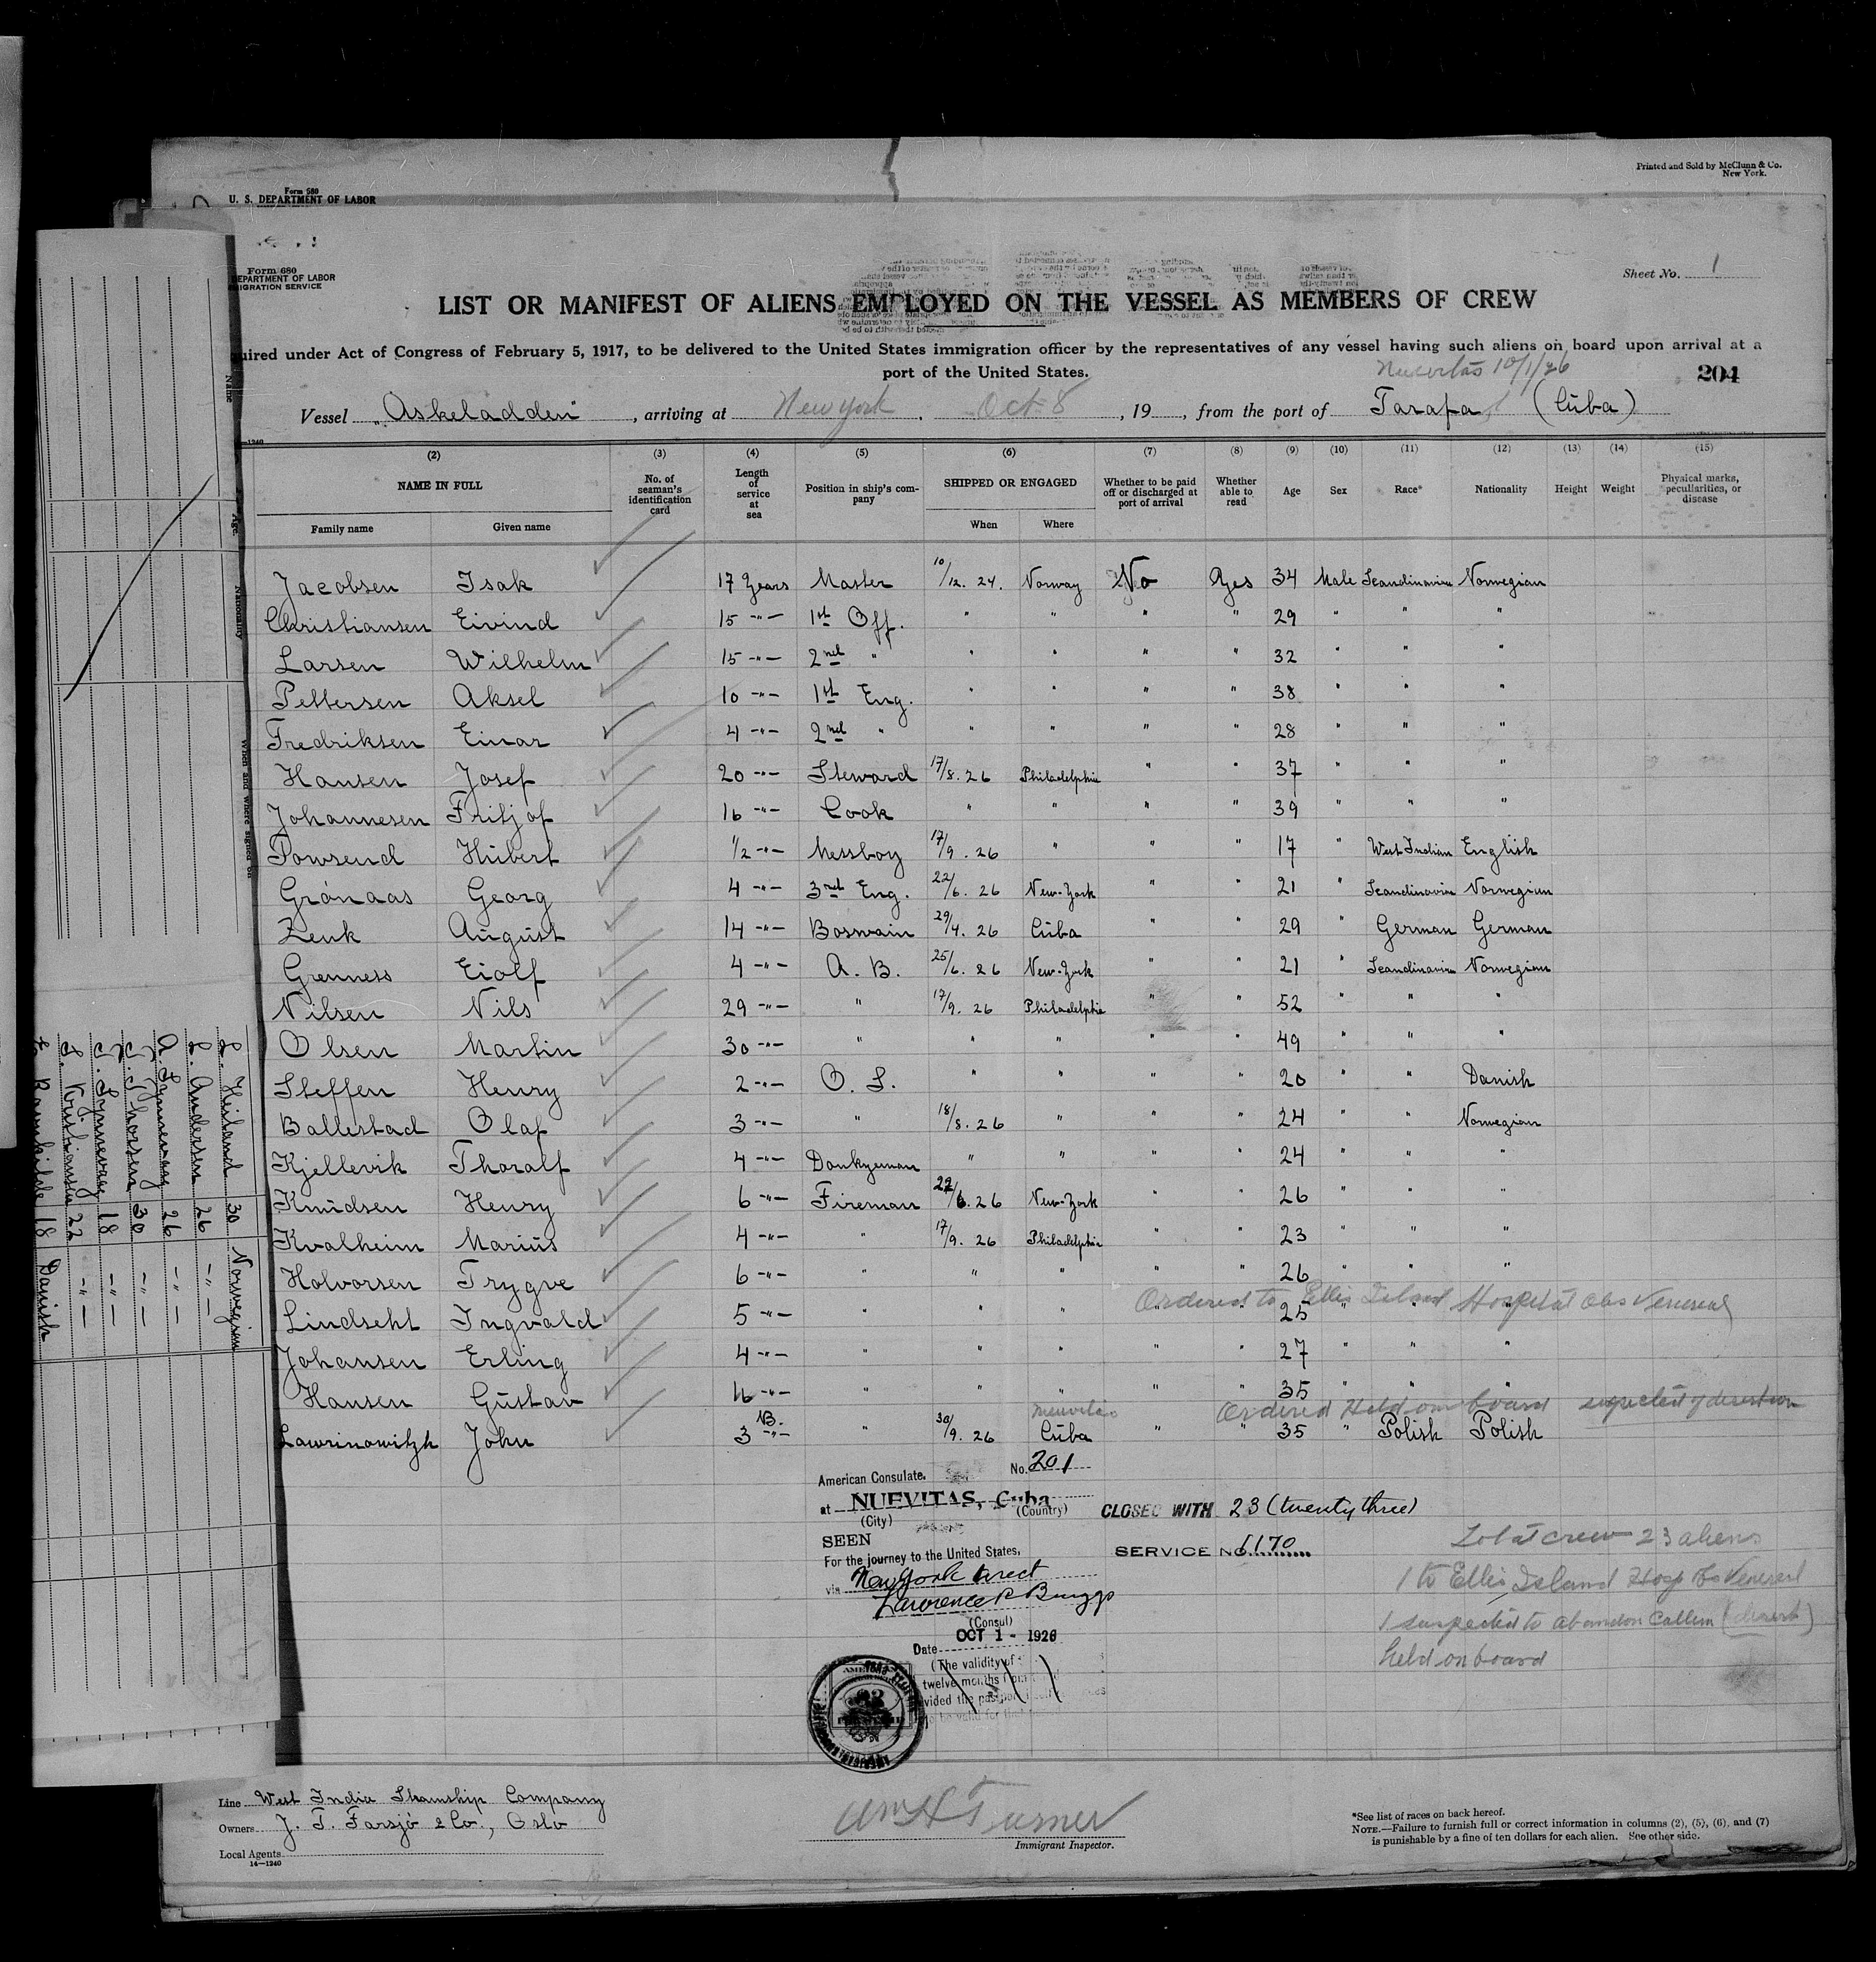 Printed and Sold by McClunn & Co.
New York.
Form 680
U. S. DEPARTMENT OF LABOR
Form 680
DEPARTMENT OF LABOR
MIGRATION SERVICE
Sheet No. 1
LIST OR MANIFEST OF ALIENS EMPLOYED ON THE VESSEL AS MEMBERS OF CREW
uired under Act of Congress of February 5, 1917, to be delivered to the United States immigration officer by the representatives of any vessel having such aliens on board upon arrival at a
port of the United States.
Nuevitas 10/1/26
204
Vessel "Askeladden", arriving at New York, Oct 8, 19, from the port of Tarafa (Cuba)
(2) (3) (4) (5) (6) (7) (8) (9) (10) (11) (12) (13) (14) (15)
NAME IN FULL
Family name Given name
No. of seaman's identification card
Length of service at sea
Position in ship's company
SHIPPED OR ENGAGED
When Where
Whether to be paid off or discharged at port of arrival
Whether able to read
Age Sex Race* Nationality Height Weight
Physical marks, peculiarities, or disease
Jacobsen Isak 17 Years Master 10/12. 24. Norway No Yes 34 Male Scandinavian Norwegian
Christiansen Eivind 15 -"- 1st Off. " " " " 29 " " "
Larsen Wilhelm 15 -"- 2nd " " " " " 32 " " "
Pettersen Aksel 10 -"- 1st Eng. " " " " 38 " " "
Fredriksen Einar 4 -"- 2nd " " " " " 28 " " "
Hansen Josef 20 -"- Steward 17/8. 26 Philadelphia " " 37 " " "
Johannesen Fritjof 16 -"- Cook " " " " 39 " " "
Powsend Hubert 1/2 -"- Messboy 17/9. 26 " " " 17 " West Indian English
Grónaas Georg 4 -"- 3rd Eng. 22/6. 26 New-York " " 21 " Scandinavian Norwegian
Zenk August 14 -"- Boswain 29/4. 26 Cuba " " 29 " German German
Grenness Eiolf 4 -"- A. B. 25/6. 26 New-York " " 21 " Scandinavian Norwegian
Nilsen Nils 29 -"- " 17/9. 26 Philadelphia " " 52 " " "
Olsen Martin 30 -"- " " " " " 49 " " "
Steffen Henry 2 -"- O. S. " " " " 20 " " Danish
Ballestad Olaf 3 -"- " 18/8. 26 " " " 24 " " Norwegian
Kjellevik Thoralf 4 -"- Donkyeman " " " " 24 " " "
Knudsen Henry 6 -"- Fireman 22/6. 26 New-York " " 26 " " "
Kvalheim Marius 4 -"- " 17/9. 26 Philadelphia " " 23 " " "
Halvorsen Trygve 6 -"- " " " " " 26 " " "
Ordered to Ellis Island Hospital obs Venereal
Lindseht Ingvald 5 -"- " " " " " 25 " " "
Johansen Erling 4 -"- " " " " " 27 " " "
Hansen Gustav 16 -"- " " " " " 35 " " "
Nuevitas Ordered Held on board suspected of desertion
Lawrinowitzh John 3 -"- " 30/9. 26 Cuba " " 35 " Polish Polish
American Consulate. No. 201
at NUEVITAS, Cuba
(City) (Country)
CLOSED WITH 23 (twenty three)
SEEN
For the journey to the United States,
SERVICE NO. 1170
via New York direct
Lawrence P. Briggs
(Consul)
Date OCT 1 - 1926
(The validity of
twelve months
Total crew 23 aliens
1 to Ellis Island Hosp obs Venereal
1 suspected to abandon (desert)
held on board
Line West India Steamship Company
Owners J. T. Farsjö & Co., Oslo
Local Agents
14—1240
Wm H Turner
Immigrant Inspector.
*See list of races on back hereof.
NOTE.—Failure to furnish full or correct information in columns (2), (5), (6), and (7)
is punishable by a fine of ten dollars for each alien. See other side.
Name
Age
Nationality
When and where signed on
Heiland 30 Norwegian
Andersen 26 -"-
A. Synnevaag 26 -"-
Thorsen 30 -"-
Synnevaag 18 -"-
Kristiansen 22 -"-
18 Danish